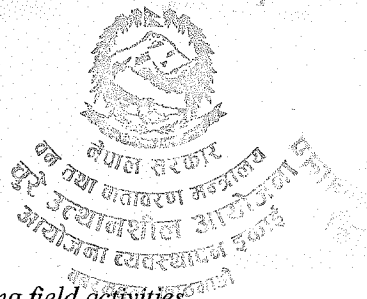 नेपाल सरकार
वन तथा वातावरण मन्त्रालय
चुरे उत्थानशील आयोजना
आयोजना व्यवस्थापन इकाई
field activities